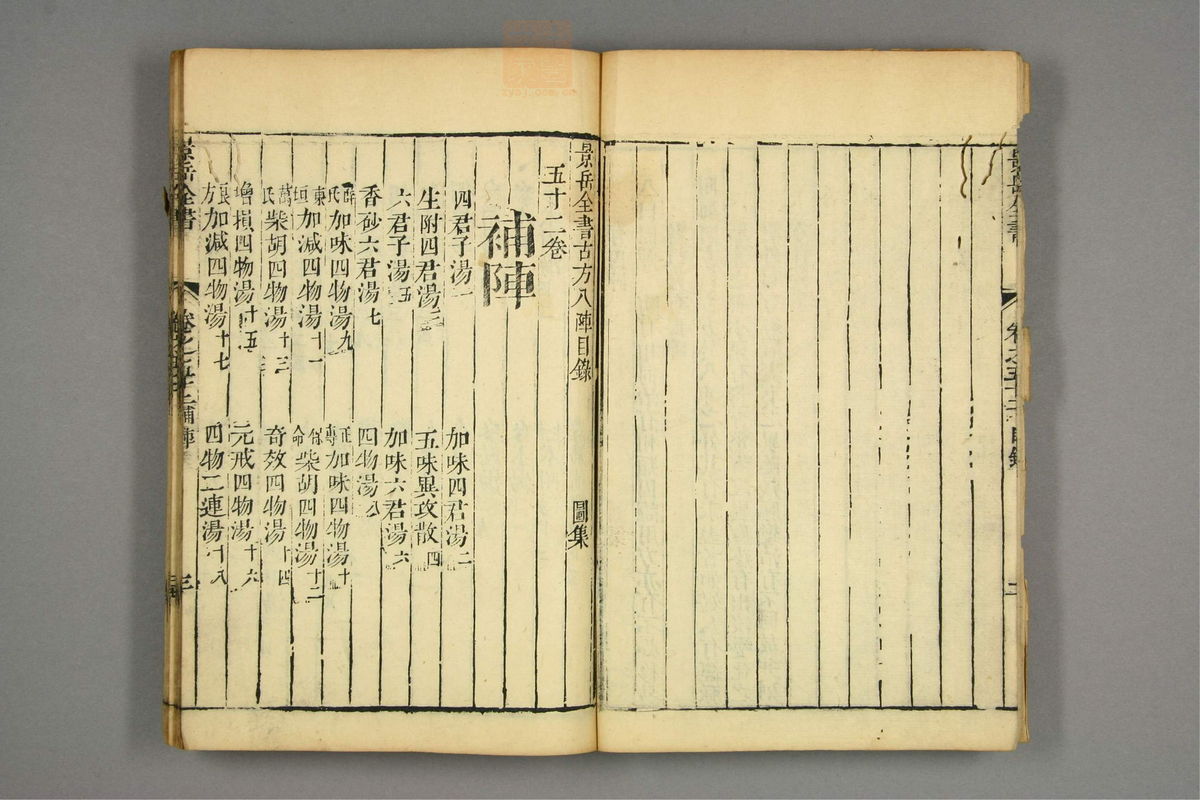 景岳全書
卷之五十二
目錄
景岳全書古方八陣目錄
圖集
五十二卷
補陣
四君子湯一
加味四君湯二
生附四君湯三
五味異攻散四
六君子湯五
加味六君湯六
香砂六君湯七
四物湯八
薛氏加味四物湯九
正傳加味四物湯十
東垣加減四物湯十一
保命柴胡四物湯十二
萬氏柴胡四物湯十三
奇效四物湯十四
增損四物湯十五
元戎四物湯十六
良方加減四物湯十七
四物二連湯十八
景岳全書
卷之五十二補陣